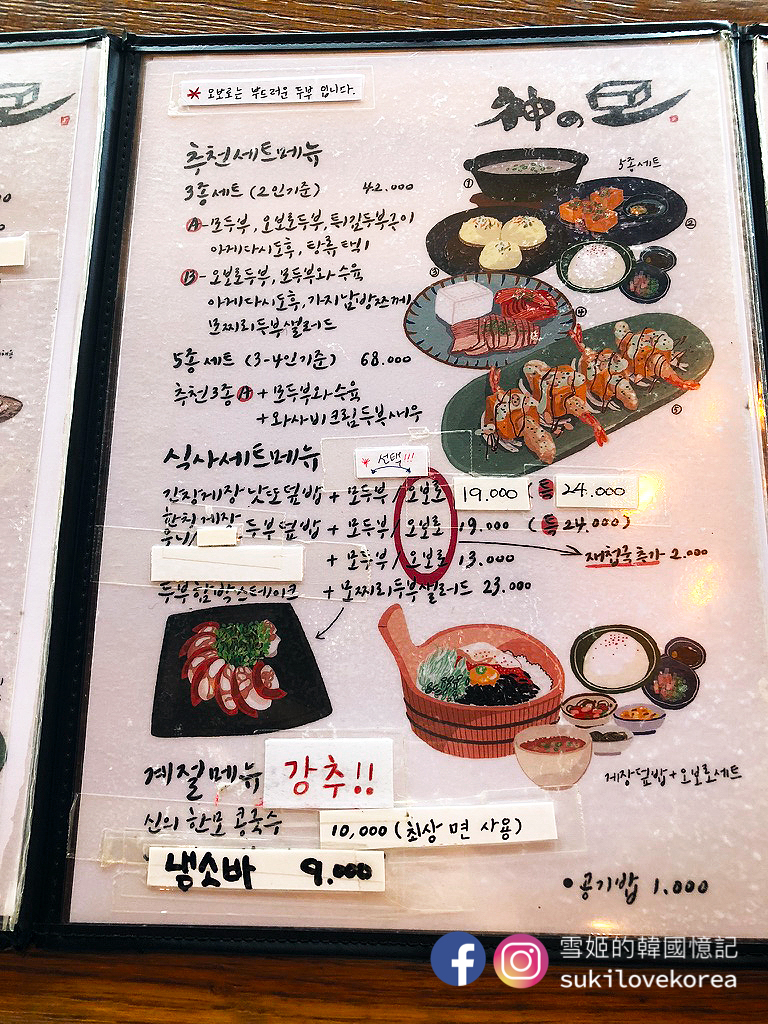 * 오보로는 부드러운 두부 입니다.
神の모
추천세트메뉴
3종세트 (2인기준) 42.000
A-모두부, 오보로두부, 튀김두부구이
아게다시도후, 탕류택1
B-오보로두부, 모두부와수육
아게다시도후, 가지남방쯔께
모찌리두부샐러드
5종세트 (3-4인기준) 68.000
추천3종 A + 모두부와수육
+ 와사비크림두부새우
5종세트
①
②
③
④
⑤
식사세트메뉴
* 선택!!!
간장게장 낫또덮밥 + 모두부/오보로 19.000 (특 24.000
한치게장
두부덮밥 + 모두부/오보로 19.000 (특 24.000)
+ 모두부/오보로 13.000
재첩국추가 2.000
두부함박스테이크 + 모찌리두부샐러드 23.000
게장덮밥+오보로세트
계절메뉴 강추!!
신의 한모 콩국수 10,000 (최상 면 사용)
냉소바 9.000
• 공기밥 1.000
雪姬的韓國憶記
sukilovekorea